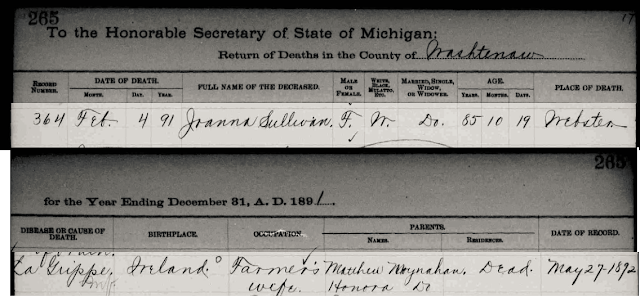 265
To the Honorable Secretary of State of Michigan:
Return of Deaths in the County of Washtenaw
RECORD NUMBER. DATE OF DEATH. MONTH. DAY. YEAR. FULL NAME OF THE DECEASED. MALE OR FEMALE. WHITE, BLACK, MULATTO, ETC. MARRIED, SINGLE, WIDOW, OR WIDOWER. AGE. YEARS. MONTHS. DAYS. PLACE OF DEATH.
364 Feb. 4 91 Joanna Sullivan. F. W. Do. 85 10 19 Webster
265
for the Year Ending December 31, A. D. 1891.
DISEASE OR CAUSE OF DEATH. BIRTHPLACE. OCCUPATION. PARENTS. NAMES. RESIDENCES. DATE OF RECORD.
La Grippe. Ireland. Farmer's Matthew Moynahan. Dead. May 27-1892
wife. Honora Do